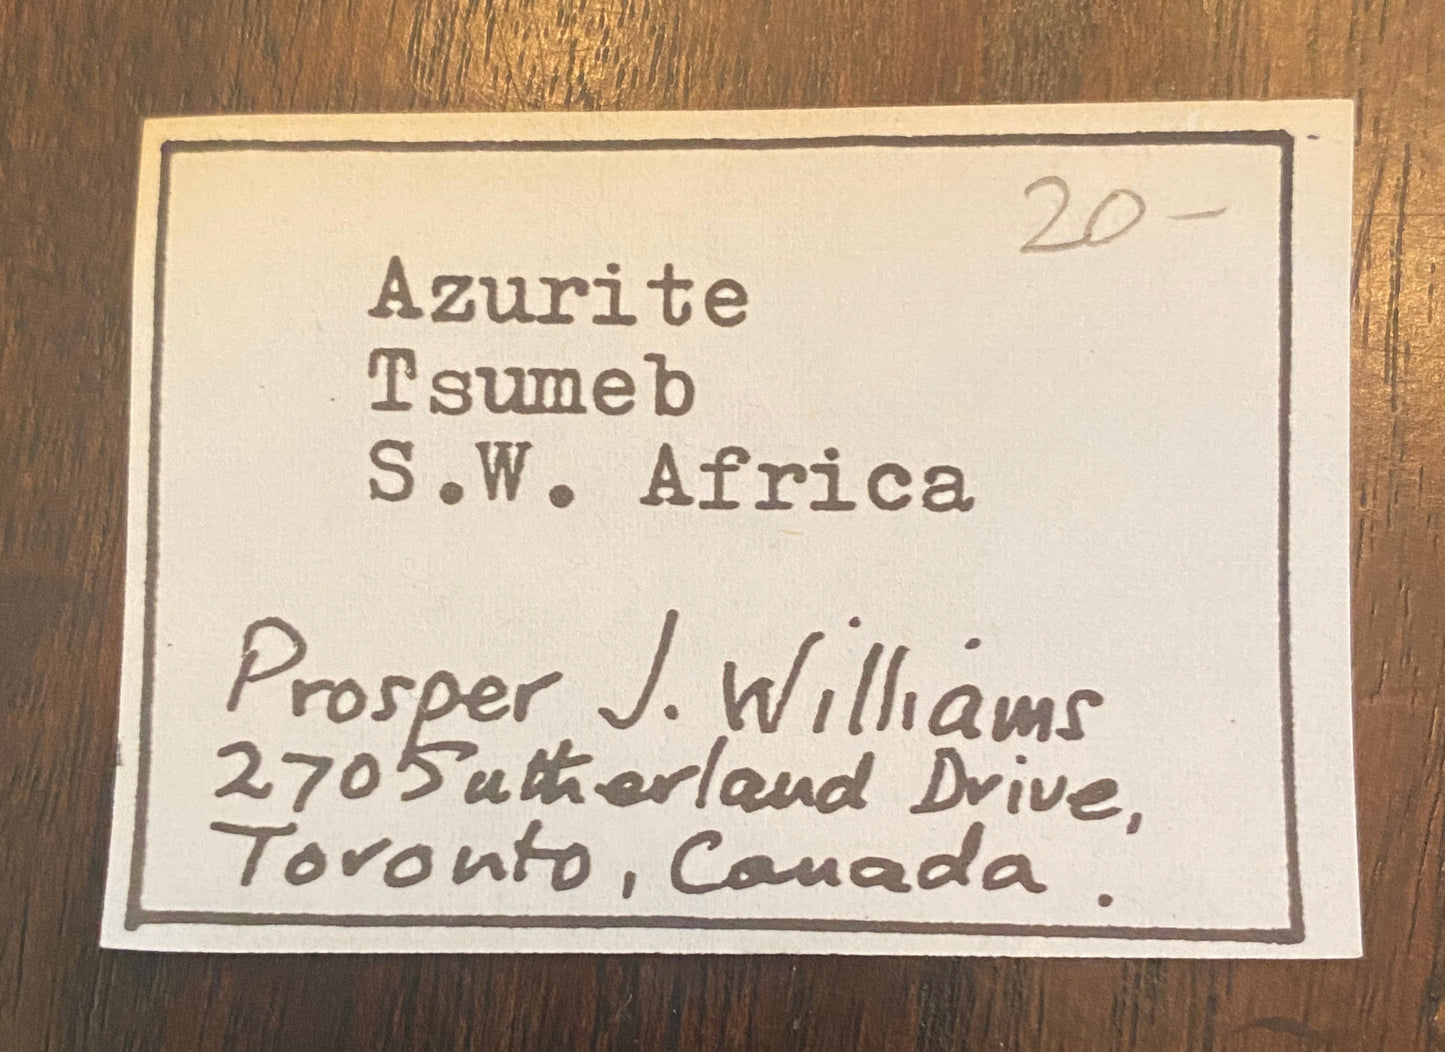 20-
Azurite
Tsumeb
S.W. Africa
Prosper J. Williams
270 Sutherland Drive,
Toronto, Canada.